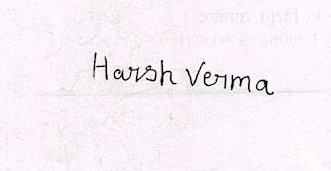 Harsh Verma